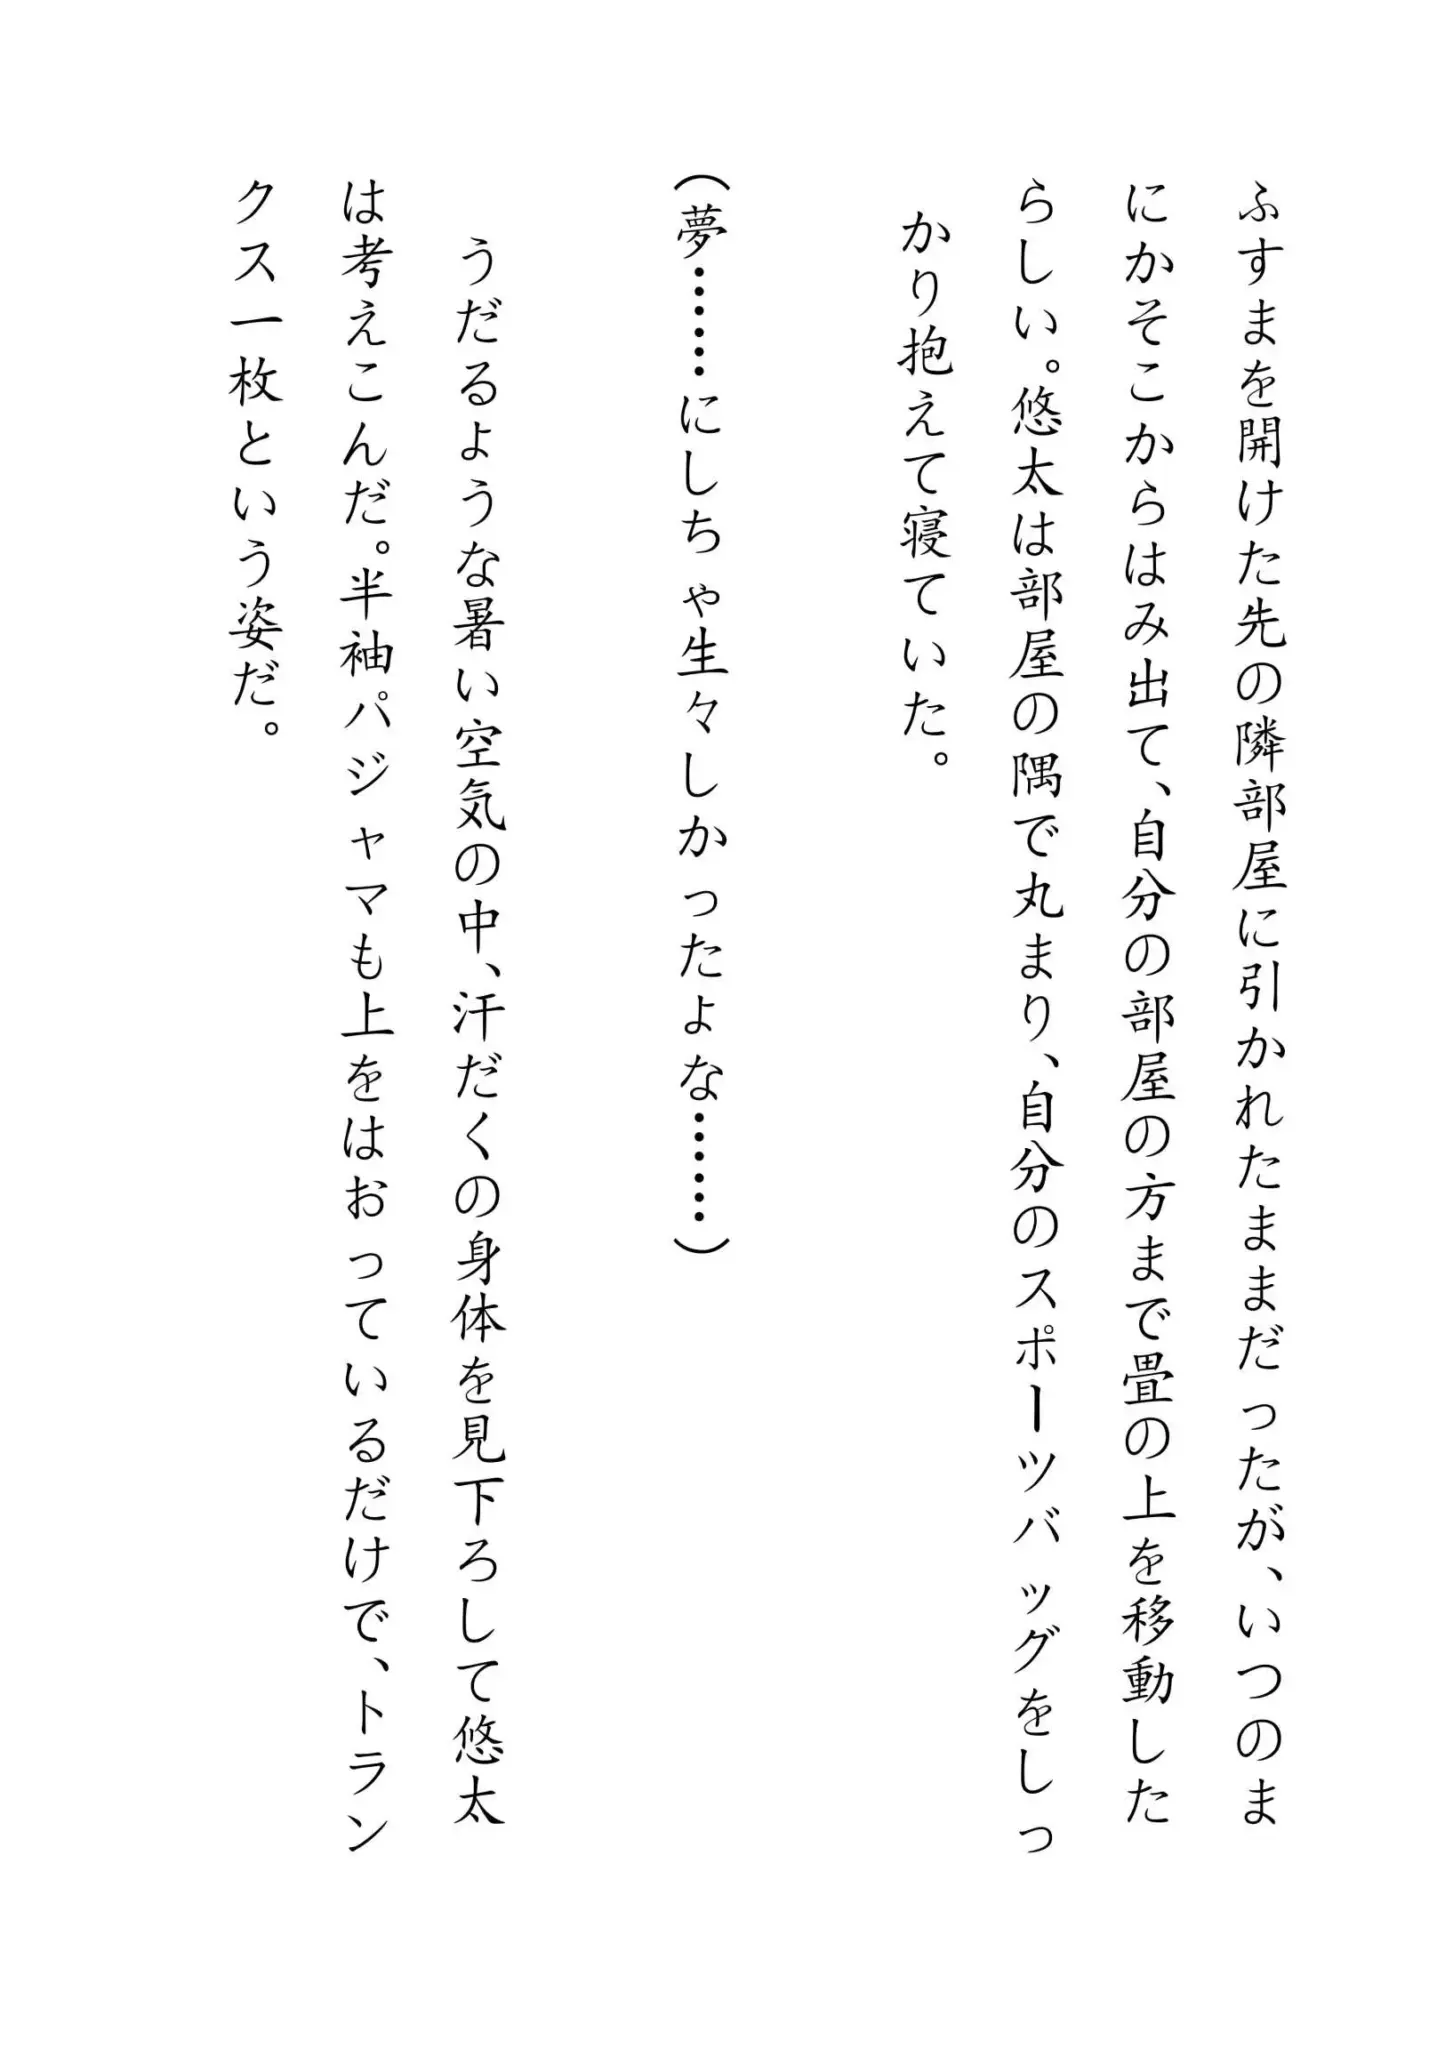 ふすまを開けた先の隣部屋に引かれたままだったが、いつのま
にかそこからはみ出て、自分の部屋の方まで畳の上を移動した
らしい。悠太は部屋の隅で丸まり、自分のスポーツバッグをしっ
かり抱えて寝ていた。
（夢……にしちゃ生々しかったよな……）
うだるような暑い空気の中、汗だくの身体を見下ろして悠太
は考えこんだ。半袖パジャマも上をはおっているだけで、トラン
クス一枚という姿だ。